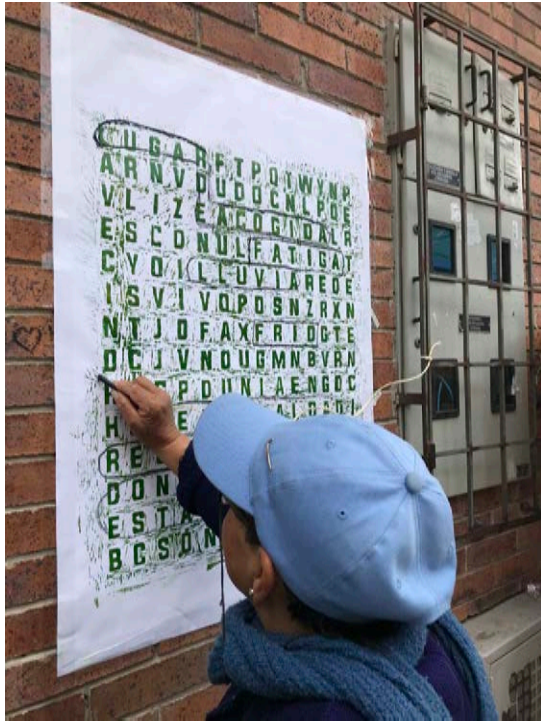 LUGARFTPQTWYNP
ARNVDUDOCNLPOE
VLIZEACOGIDALR
ESCONULFATIGAT
CYOILLUVIAREOE
ISVIVOPOSNZRXN
NTJOFAXFRIOGTE
DCJVNOUGMNBVRN
PDUNIAENGDC
H E ALDADI
RE
DON
ESTA
BCSDN